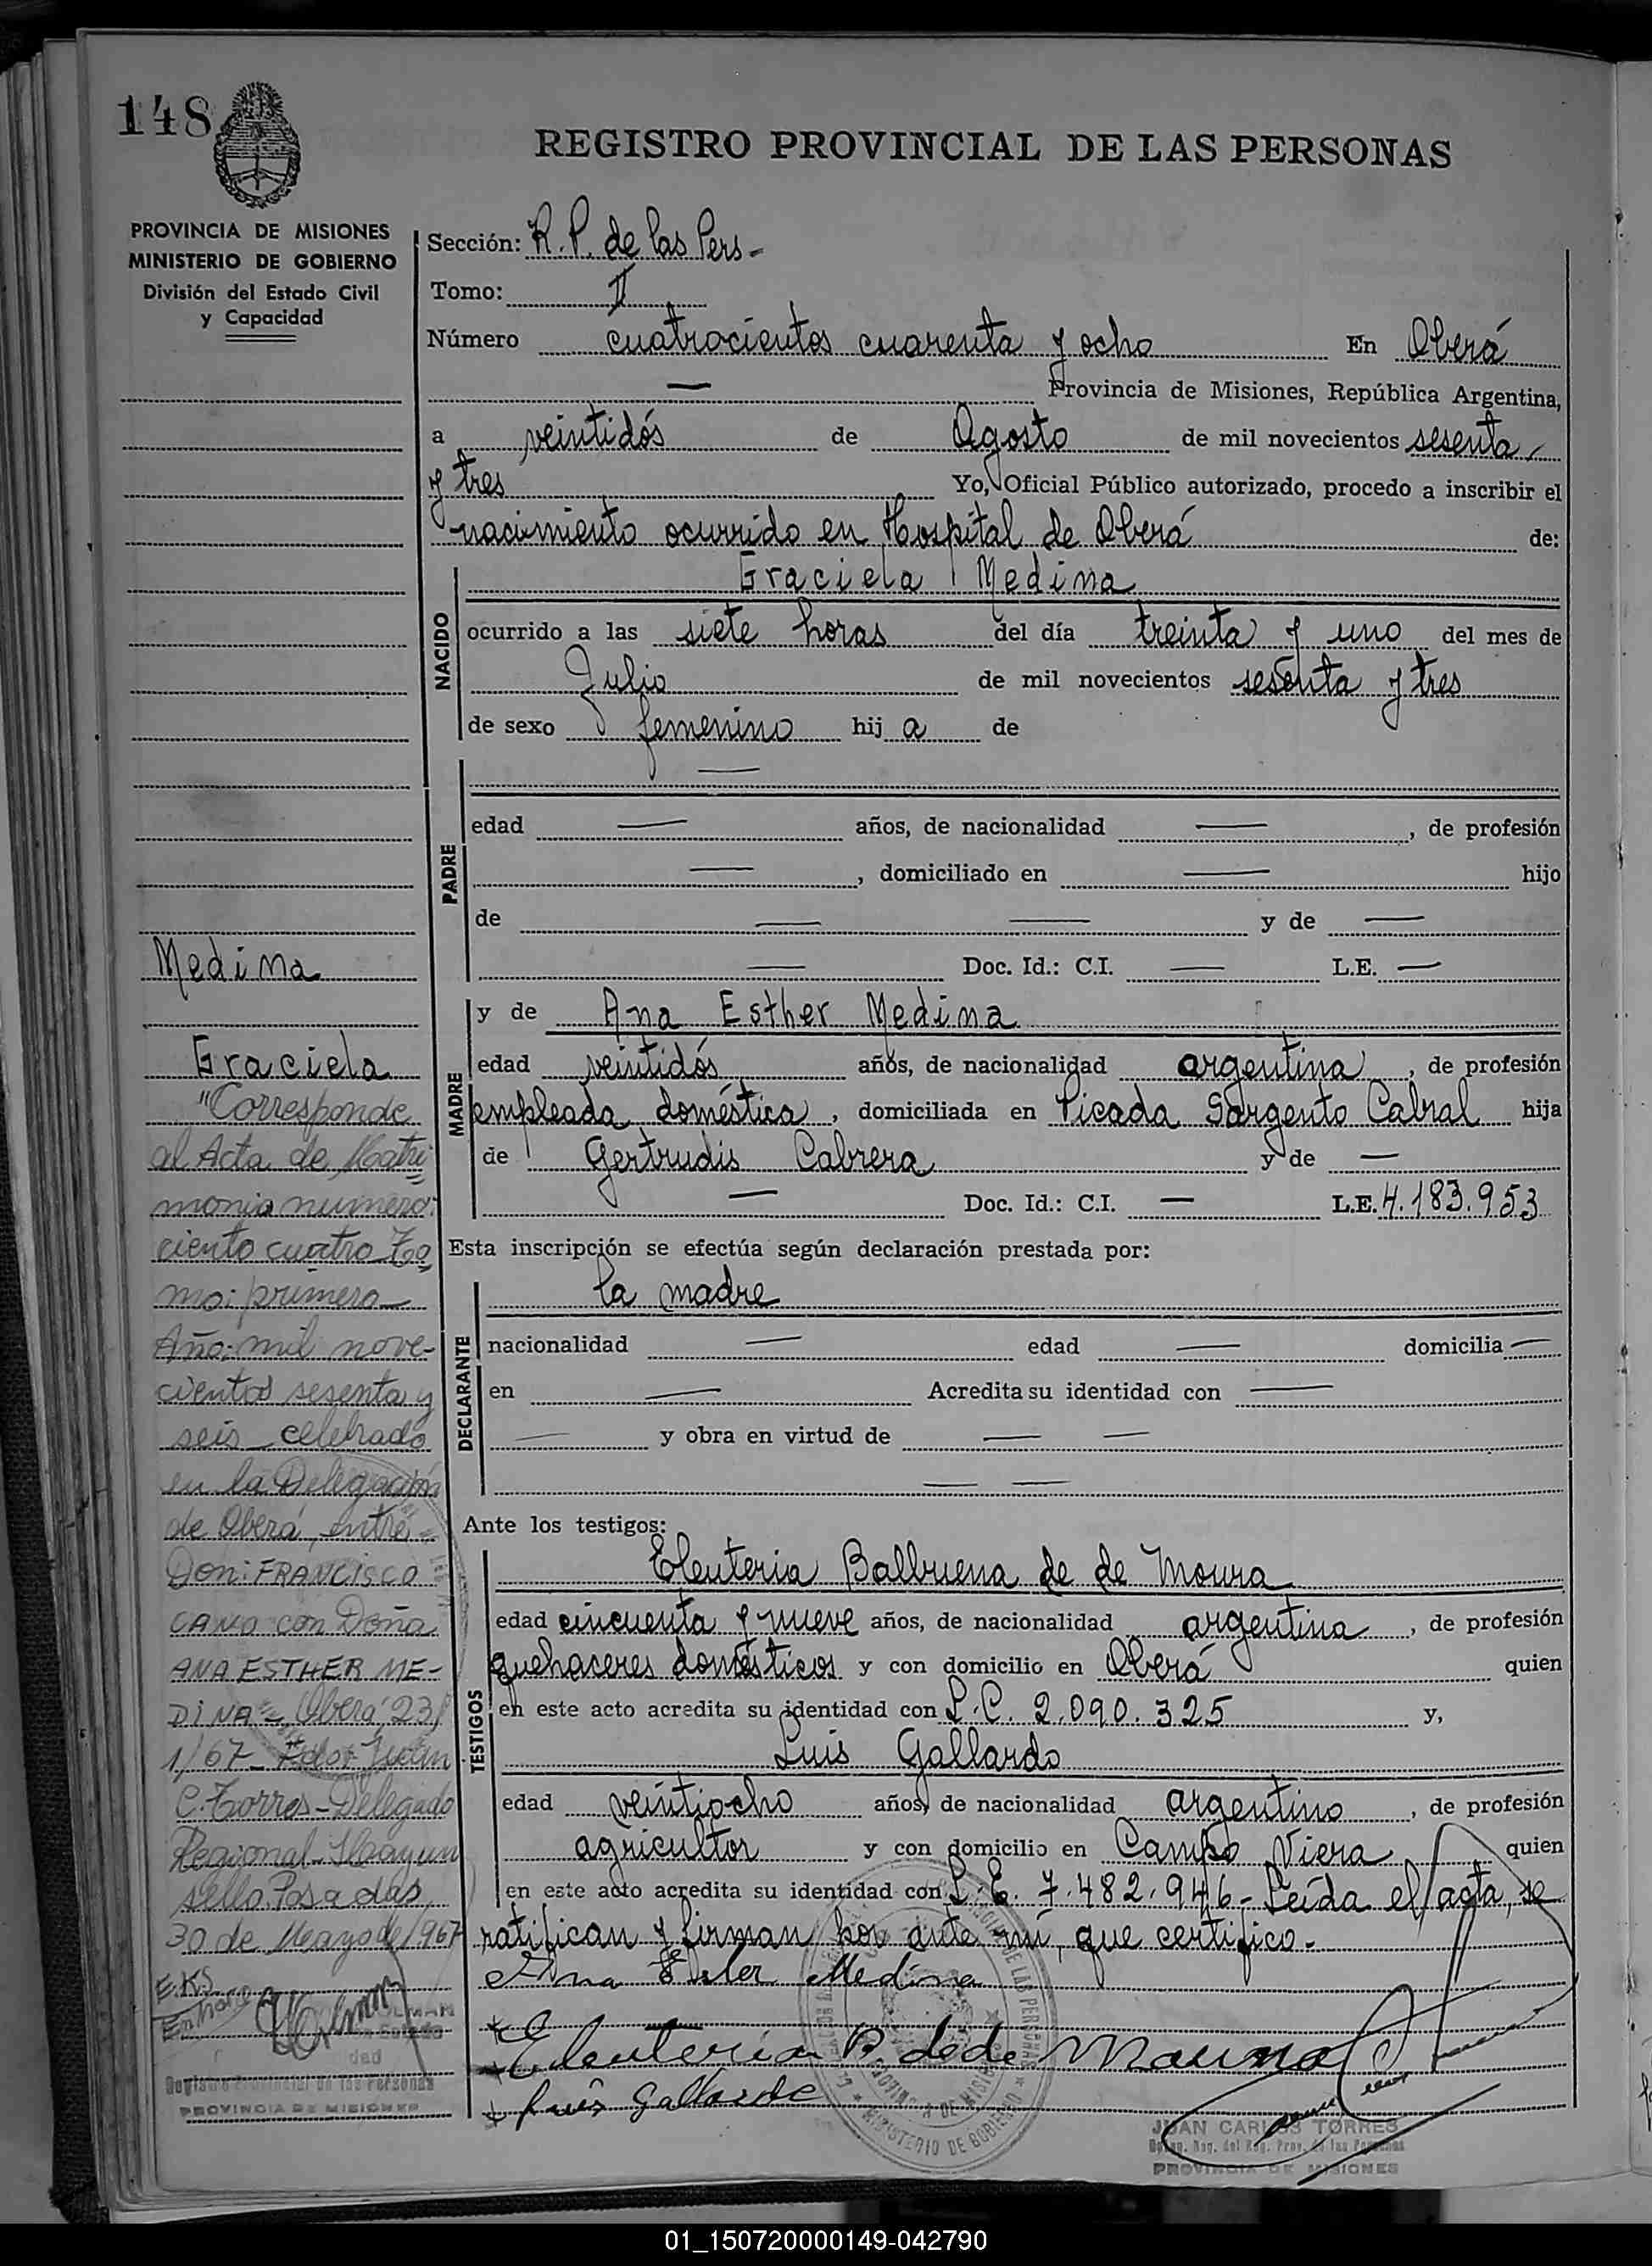 148
REGISTRO PROVINCIAL DE LAS PERSONAS
PROVINCIA DE MISIONES
MINISTERIO DE GOBIERNO
División del Estado Civil
y Capacidad
Sección: R.P. de las Pers-
Tomo: II
Número cuatrocientos cuarenta y ocho En Oberá
— Provincia de Misiones, República Argentina,
a veintidós de Agosto de mil novecientos sesenta
y tres Yo, Oficial Público autorizado, procedo a inscribir el
nacimiento ocurrido en Hospital de Oberá de:
NACIDO
Graciela Medina
ocurrido a las siete horas del día treinta y uno del mes de
Julio de mil novecientos sesenta y tres
de sexo femenino hij a de
PADRE
—
edad — años, de nacionalidad — , de profesión
— , domiciliado en — hijo
de — — y de —
— Doc. Id.: C.I. — L.E. —
MADRE
y de Ana Esther Medina
edad veintidós años, de nacionalidad argentina , de profesión
empleada doméstica , domiciliada en Picada Sargento Cabral hija
de Gertrudis Cabrera y de —
— Doc. Id.: C.I. — L.E. 4.183.953
Esta inscripción se efectúa según declaración prestada por:
DECLARANTE
la madre
nacionalidad — edad — domicilia —
en — Acredita su identidad con —
— y obra en virtud de — —
— —
Ante los testigos:
TESTIGOS
Eleuteria Balbuena de de Moura
edad cincuenta y nueve años, de nacionalidad argentina , de profesión
quehaceres domésticos y con domicilio en Oberá quien
en este acto acredita su identidad con L.C. 2.090.325 y,
Luis Gallardo
edad veintiocho años, de nacionalidad argentino , de profesión
agricultor y con domicilio en Campo Viera quien
en este acto acredita su identidad con L.E. 7.482.946- Leída el acta, se
ratifican y firman por ante mí, que certifico.-
Ana Ester Medina
Eleuteria B. de de Moura
Luis Gallardo
JUAN CARLOS TORRES
PROVINCIA DE MISIONES
Medina
Graciela
"Corresponde
al Acta de Matri
monio numero:
ciento cuatro To
mo: primero_
Año: mil nove-
cientos sesenta y
seis_ celebrado
en la Delegación
de Oberá, entre
Don: FRANCISCO
CANO con Doña
ANA ESTHER ME-
DINA"= Oberá, 23/
1/67_ Fdo: Juan
C. Torres-Delegado
Regional_ Hay un
sello. Posadas
30 de Mayo de 1967
E.K.S.
Registro Provincial de las Personas
PROVINCIA DE MISIONES
MINISTERIO DE GOBIERNO
01_150720000149-042790